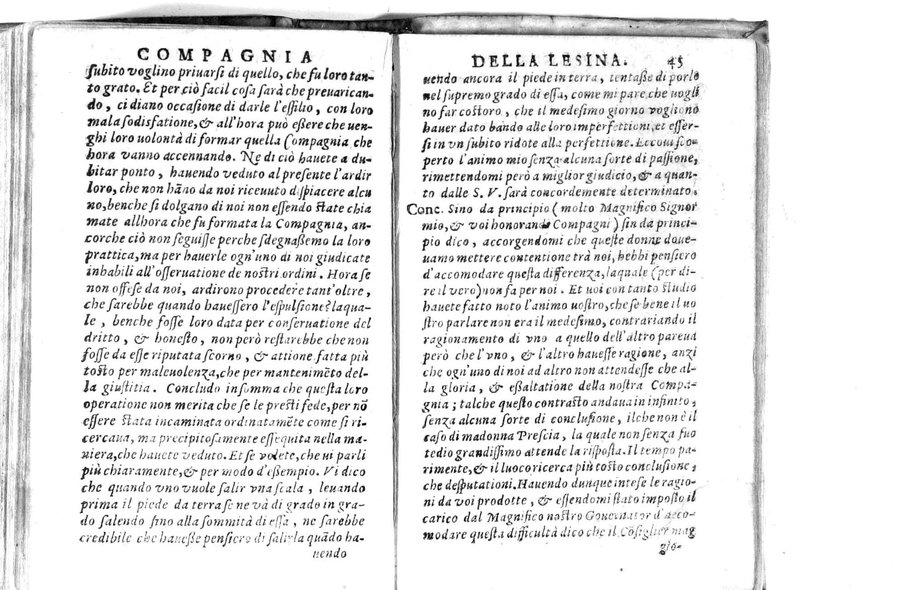 COMPAGNIA
subito voglino priuarsi di quello, che fu loro tan-
to grato. Et per ciò facil cosa sarà che preuarican-
do, ci diano occasione di darle l'essilio, con loro
mala sodisfatione, & all'hora può essere che uen-
ghi loro uolontà di formar quella Compagnia che
hora vanno accennando. Ne di ciò hauete a du-
bitar ponto, hauendo veduto al presente l'ardir
loro, che non hāno da noi riceuuto dispiacere alcu
no, benche si dolgano di noi non essendo state chia
mate allhora che fu formata la Compagnia, an-
corche ciò non seguisse perche sdegnassemo la loro
prattica, ma per hauerle ogn'uno di noi giudicate
inhabili all'osseruatione de nostri ordini. Hora se
non offese da noi, ardirono procedere tant'oltre,
che sarebbe quando hauessero l'espulsione? laqua-
le, benche fosse loro data per conseruatione del
dritto, & honesto, non però restarebbe che non
fosse da esse riputata scorno, & attione fatta più
tosto per maleuolenza, che per mantenimēto del-
la giustitia. Concludo insomma che questa loro
operatione non merita che se le presti fede, per nō
essere stata incaminata ordinatamēte come si ri-
cercaua, ma precipitosamente essequita nella ma-
niera, che hauete veduto. Et se volete, che ui parli
più chiaramente, & per modo d'essempio. Vi dico
che quando vno vuole salir vna scala, leuando
prima il piede da terra se ne và di grado in gra-
do salendo fino alla sommità di essa, ne sarebbe
credibile che hauesse pensiero di salirla quādo ha-
uendo
DELLA LESINA. 45
uendo ancora il piede in terra, tentasse di porlo
nel supremo grado di essa, come mi pare che uogli
no far costoro, che il medesimo giorno vogliono
hauer dato bando alle loro imperfettioni, et esser-
si in vn subito ridote alla perfettione. Eccoui sco-
perto l'animo mio senza alcuna sorte di passione,
rimettendomi però a miglior giudicio, & a quan-
to dalle S. V. sarà concordemente determinato.
Conc. Sino da principio (molto Magnifico Signor
mio, & voi honorandi Compagni) sin da princi-
pio dico, accorgendomi che queste donne doue-
uamo mettere contentione trà noi, hebbi pensiero
d'accomodare questa differenza, laquale (per di-
re il vero) non fa per noi. Et voi con tanto studio
hauete fatto noto l'animo uostro, che se bene il uo
stro parlare non era il medesimo, contrariando il
ragionamento di vno a quello dell'altro pareua
però che l'vno, & l'altro hauesse ragione, anzi
che ogn'uno di noi ad altro non attendesse che al-
la gloria, & essaltatione della nostra Compa-
gnia; talche questo contrasto andaua in infinito,
senza alcuna sorte di conclusione, ilche non è il
caso di madonna Prescia, la quale non senza suo
tedio grandissimo attende la risposta. Il tempo pa-
rimente, & il luoco ricerca più tosto conclusione,
che desputationi. Hauendo dunque intese le ragio-
ni da voi prodotte, & essendomi stato imposto il
carico dal Magnifico nostro Gouernator d'acco-
modare questa difficultà dico che il Cōsiglier mag
gio-